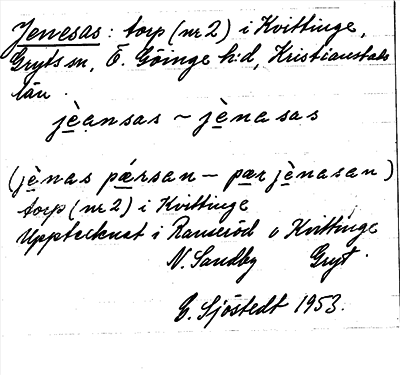 Jenesas: torp (nr 2) i Kvittinge,
Gryts sn, Ö. Göinge h:d, Kristianstads
län.
jèansas ~ jènasas
(jènas pærsan – pær jènasan)
torp (nr 2) i Kvittinge
Upptecknat i Ranseröd o Kvittinge
N. Sandby Gryt.
G. Sjöstedt 1953.